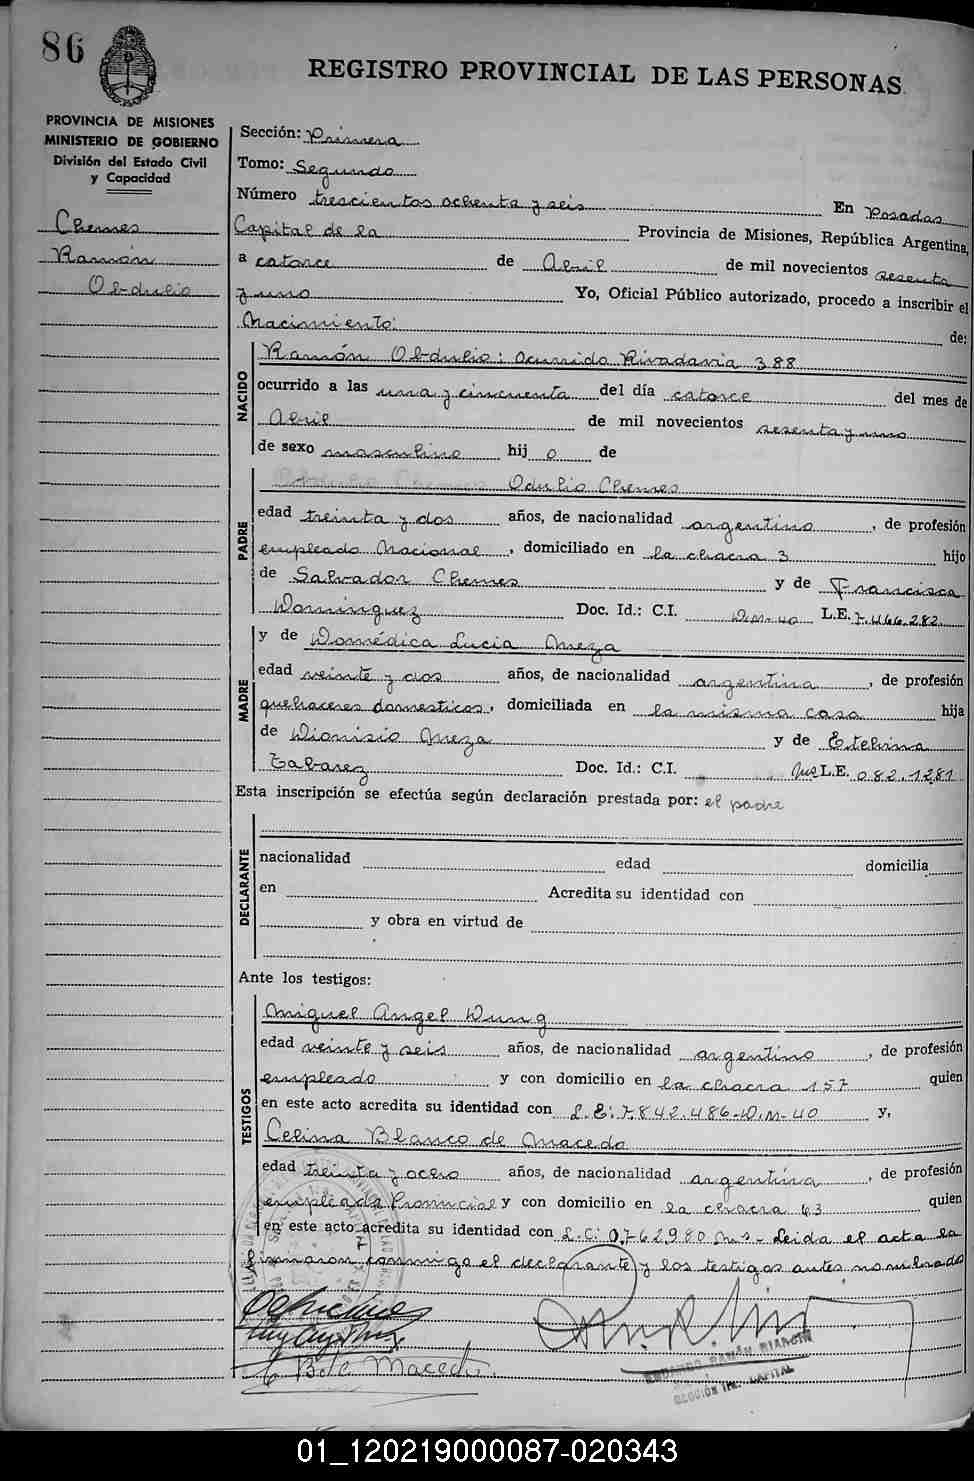 86
REGISTRO PROVINCIAL DE LAS PERSONAS
PROVINCIA DE MISIONES
MINISTERIO DE GOBIERNO
División del Estado Civil
y Capacidad
Chemes
Ramón
Obdulio
Sección: Primera
Tomo: Segundo
Número trescientos ochenta y seis En Posadas
Capital de la Provincia de Misiones, República Argentina,
a catorce de Abril de mil novecientos sesenta
y uno Yo, Oficial Público autorizado, procedo a inscribir el
Nacimiento: de:
NACIDO
Ramón Obdulio: ocurrido Rivadavia 388
ocurrido a las una y cincuenta del día catorce del mes de
Abril de mil novecientos sesenta y uno
de sexo masculino hijo de
PADRE
Odulio Chemes
edad treinta y dos años, de nacionalidad argentino, de profesión
empleado Nacional, domiciliado en la chacra 3 hijo
de Salvador Chemes y de Francisca
Dominguez Doc. Id.: C.I. D.M-40 L.E. 7.466.282
MADRE
y de Domédica Lucia Meza
edad veinte y dos años, de nacionalidad argentina, de profesión
quehaceres domesticos, domiciliada en la misma casa hija
de Dionisio Meza y de Etelvina
Tabarez Doc. Id.: C.I. L.E. 082.1281
Esta inscripción se efectúa según declaración prestada por: el padre
DECLARANTE
nacionalidad edad domicilia
en Acredita su identidad con
y obra en virtud de
Ante los testigos:
TESTIGOS
Miguel Angel Dung
edad veinte y seis años, de nacionalidad argentino, de profesión
empleado y con domicilio en la chacra 157 quien
en este acto acredita su identidad con L.E: 7.842.486-D.M-40 y,
Celina Blanco de Macedo
edad treinta y ocho años, de nacionalidad argentina, de profesión
empleada Provincial y con domicilio en la chacra 63 quien
en este acto acredita su identidad con L.C: 0.762.980 Ms- Leida el acta la
firmaron conmigo el declarante y los testigos antes nombrado
C B de Macedo
RAMÓN BIANCHI
SECCIÓN 1RA. CAPITAL
01_120219000087-020343